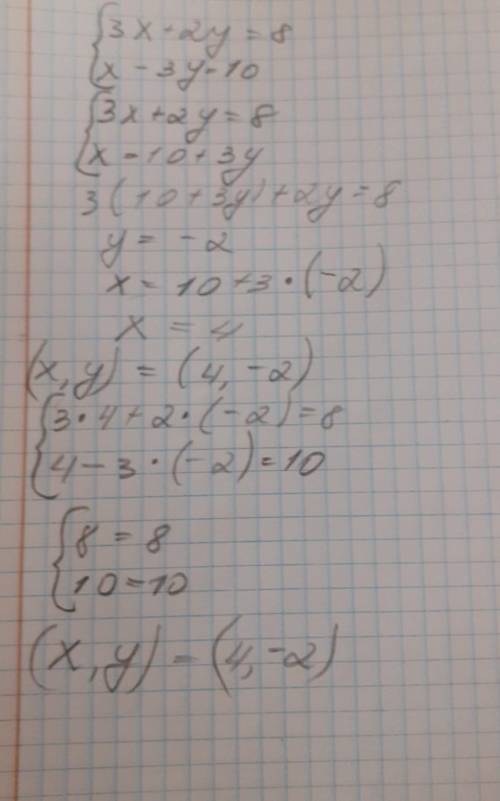 {3x-2y=8
{x-3y-10
{3x+2y=8
{x-10+3y
3(10+3y)+2y=8
y=-2
x=10+3·(-2)
x=4
(x,y)=(4,-2)
{3·4+2·(-2)=8
{4-3·(-2)=10
{8=8
{10=10
(x,y)-(4,-2)